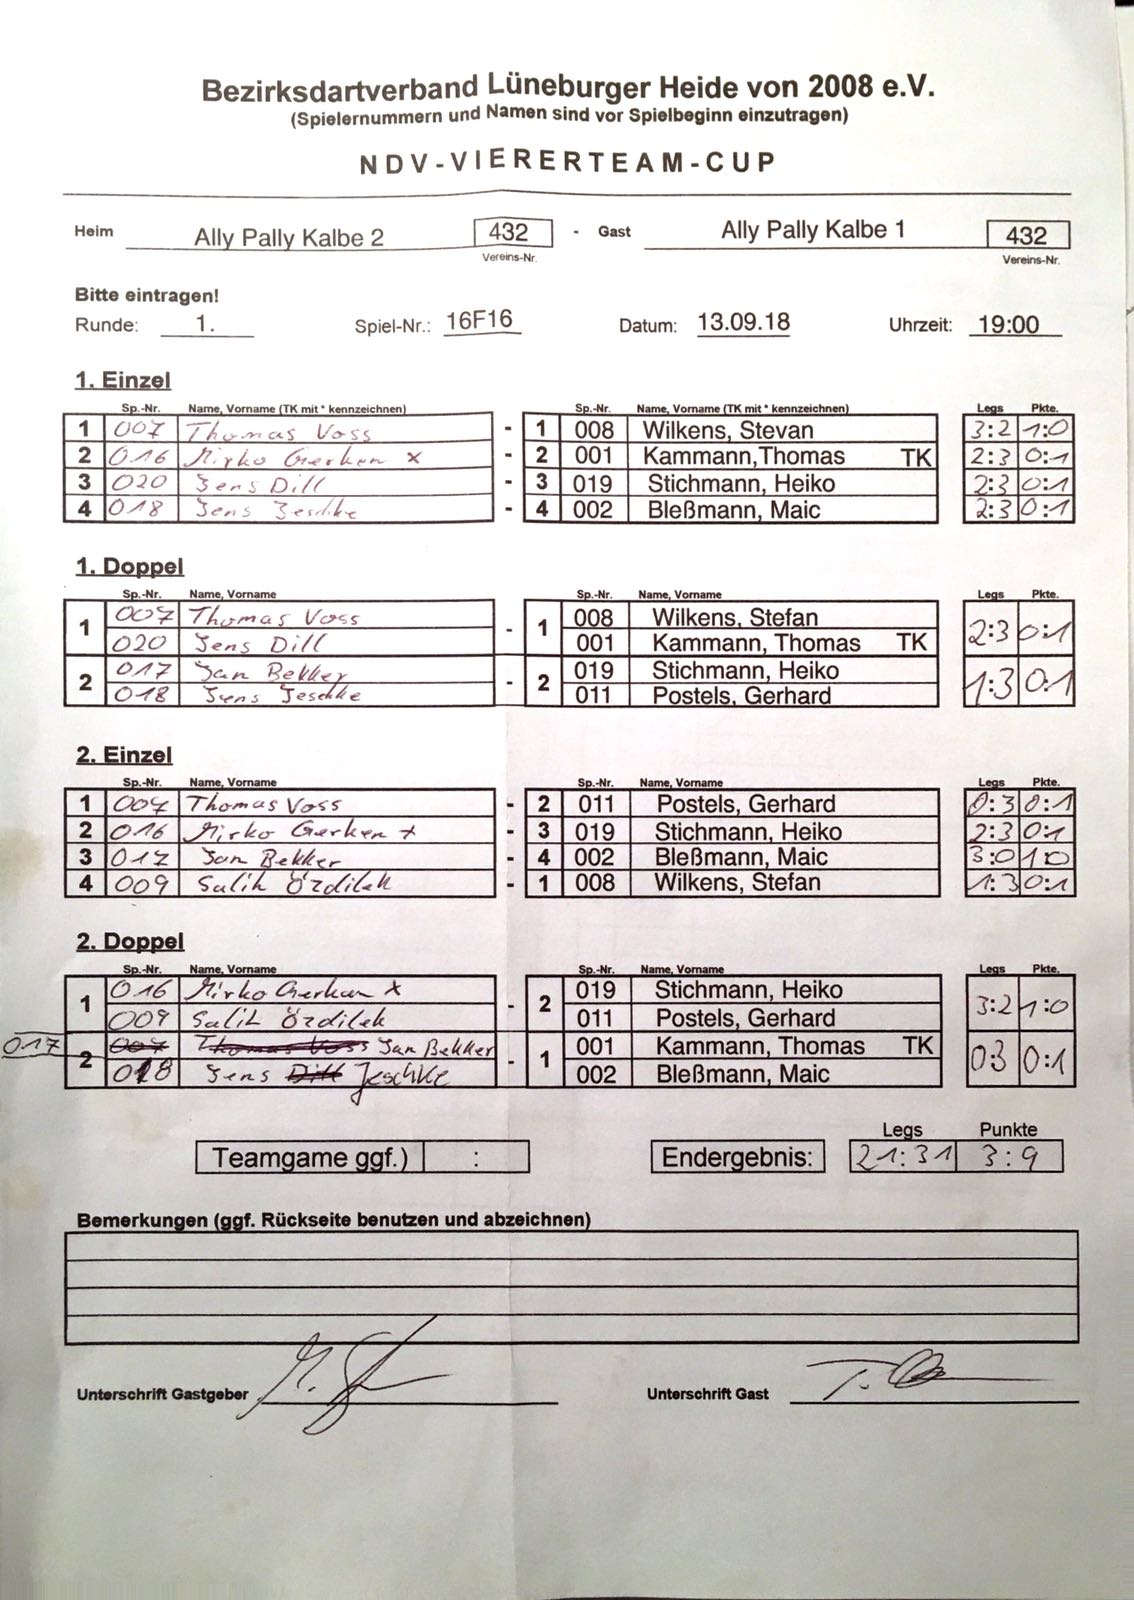 Bezirksdartverband Lüneburger Heide von 2008 e.V.
(Spielernummern und Namen sind vor Spielbeginn einzutragen)
NDV-VIERERTEAM-CUP
Heim Ally Pally Kalbe 2 432 - Gast Ally Pally Kalbe 1 432
Vereins-Nr. Vereins-Nr.
Bitte eintragen!
Runde: 1. Spiel-Nr.: 16F16 Datum: 13.09.18 Uhrzeit: 19:00
1. Einzel
Sp.-Nr. Name, Vorname (TK mit * kennzeichnen) Sp.-Nr. Name, Vorname (TK mit * kennzeichnen) Legs Pkte.
1 007 Thomas Voss - 1 008 Wilkens, Stevan 3:2 1:0
2 016 Mirko Gerken x - 2 001 Kammann,Thomas TK 2:3 0:1
3 020 Jens Dill - 3 019 Stichmann, Heiko 2:3 0:1
4 018 Jens Jeschke - 4 002 Bleßmann, Maic 2:3 0:1
1. Doppel
Sp.-Nr. Name, Vorname Sp.-Nr. Name, Vorname Legs Pkte.
1 007 Thomas Voss - 1 008 Wilkens, Stefan 2:3 0:1
020 Jens Dill 001 Kammann, Thomas TK
2 017 Jan Bekker - 2 019 Stichmann, Heiko 1:3 0:1
018 Jens Jeschke 011 Postels, Gerhard
2. Einzel
Sp.-Nr. Name, Vorname Sp.-Nr. Name, Vorname Legs Pkte.
1 007 Thomas Voss - 2 011 Postels, Gerhard 0:3 0:1
2 016 Mirko Gerken x - 3 019 Stichmann, Heiko 2:3 0:1
3 017 Jan Bekker - 4 002 Bleßmann, Maic 3:0 1:0
4 009 Salih Özdilek - 1 008 Wilkens, Stefan 1:3 0:1
2. Doppel
Sp.-Nr. Name, Vorname Sp.-Nr. Name, Vorname Legs Pkte.
1 016 Mirko Gerken x - 2 019 Stichmann, Heiko 3:2 1:0
009 Salih Özdilek 011 Postels, Gerhard
017 2 007 Thomas Voss Jan Bekker - 1 001 Kammann, Thomas TK 0:3 0:1
018 Jens Dill Jeschke 002 Bleßmann, Maic
Legs Punkte
Teamgame ggf.) : Endergebnis: 21:31 3:9
Bemerkungen (ggf. Rückseite benutzen und abzeichnen)
Unterschrift Gastgeber Unterschrift Gast